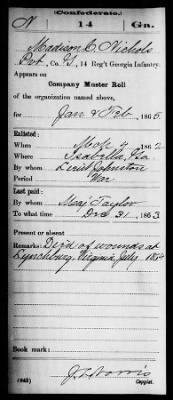 (Confederate.)
N 14 Ga.
Madison C. Nichols
Pvt, Co. G, 14 Reg't Georgia Infantry.
Appears on
Company Muster Roll
of the organization named above,
for Jan & Feb, 1865.
Enlisted:
When Mch 4, 1862
Where Isabella, Ga
By whom Lieut Johnston
Period War
Last paid:
By whom Maj Taylor
To what time Dec 31, 1863
Present or absent
Remarks: Died of wounds at
Lynchburg Virginia July 1864
(642) J. L. Norris
Copyist.